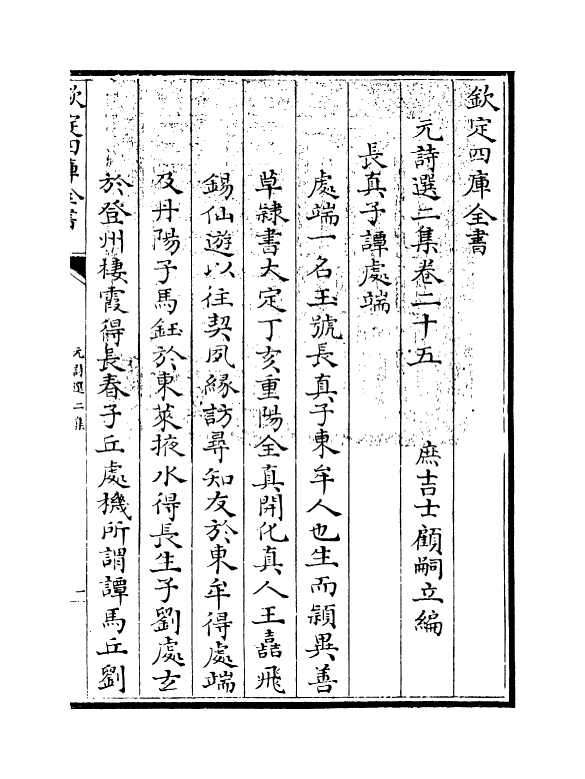 欽定四庫全書
元詩選二集卷二十五　庶吉士顧嗣立編
長真子譚處端
處端一名玉號長真子東牟人也生而穎異善
草隸書大定丁亥重陽全真開化真人王嚞飛
錫仙遊以往契夙緣訪尋知友於東牟得處端
及丹陽子馬鈺於東萊掖水得長生子劉處玄
於登州棲霞得長春子丘處機所謂譚馬丘劉
欽定四庫全書
元詩選二集
一